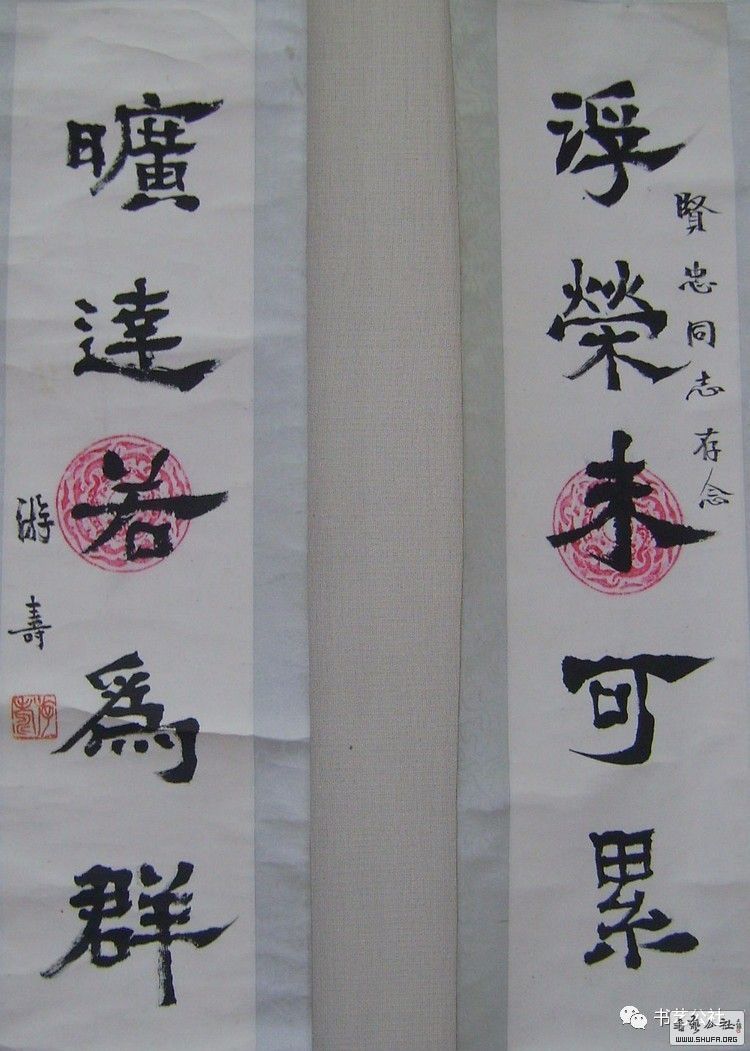 賢忠同志存念
浮榮未可累
曠達若為群
游壽
游壽
书艺公社
書藝公社
WWW.SHUFA.ORG